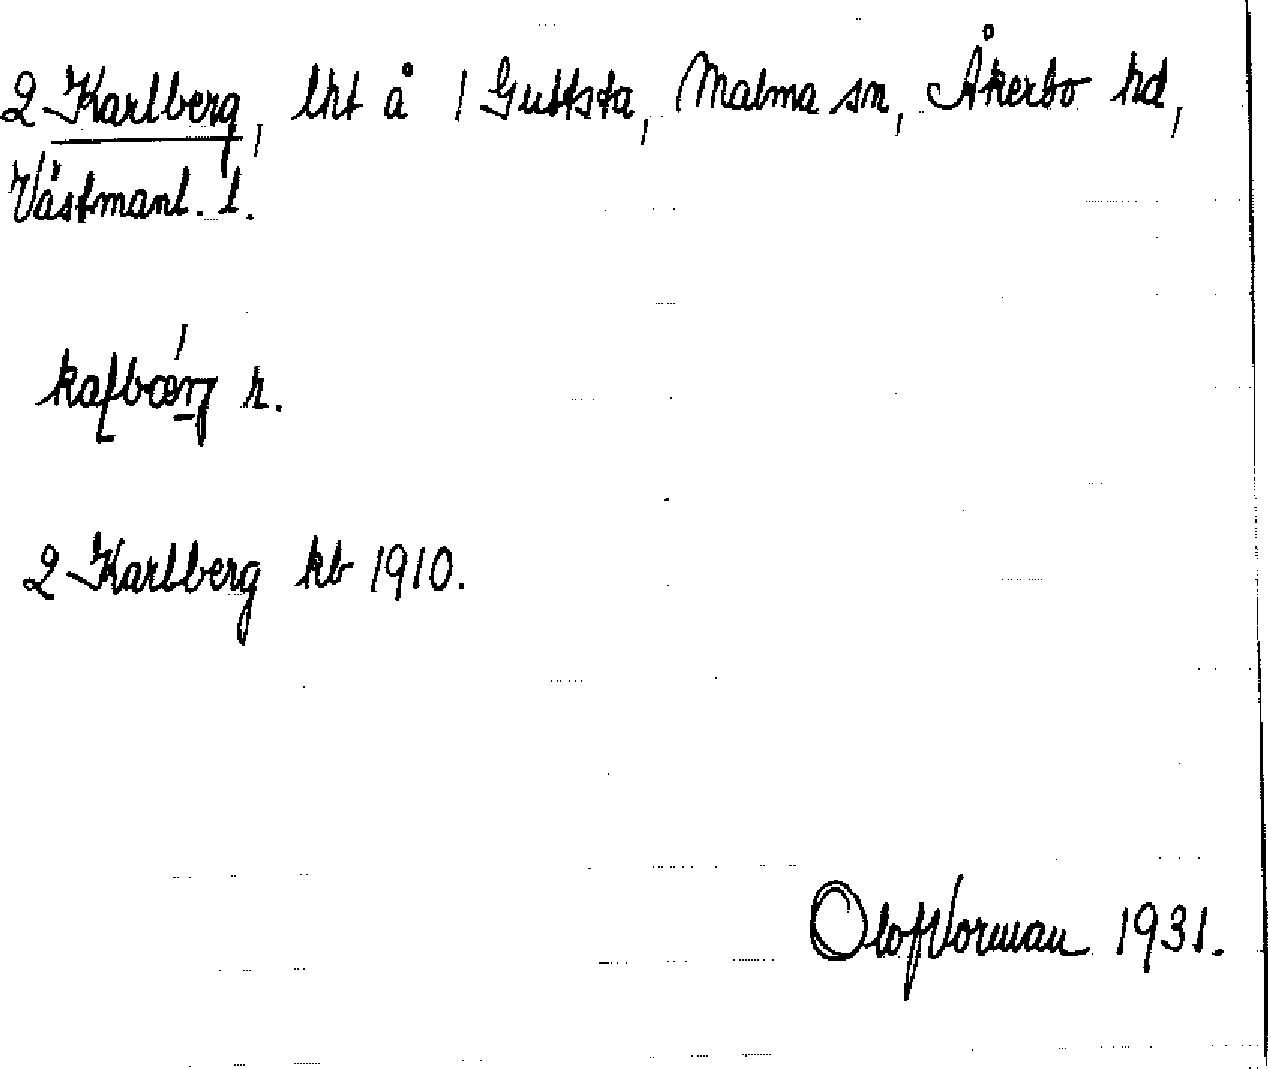 2 Karlberg, lht å 1 Guttsta, Malma sn, Åkerbo hd,
Västmanl. l.
r.
2 Karlberg kb 1910.
Olof Norman 1931.